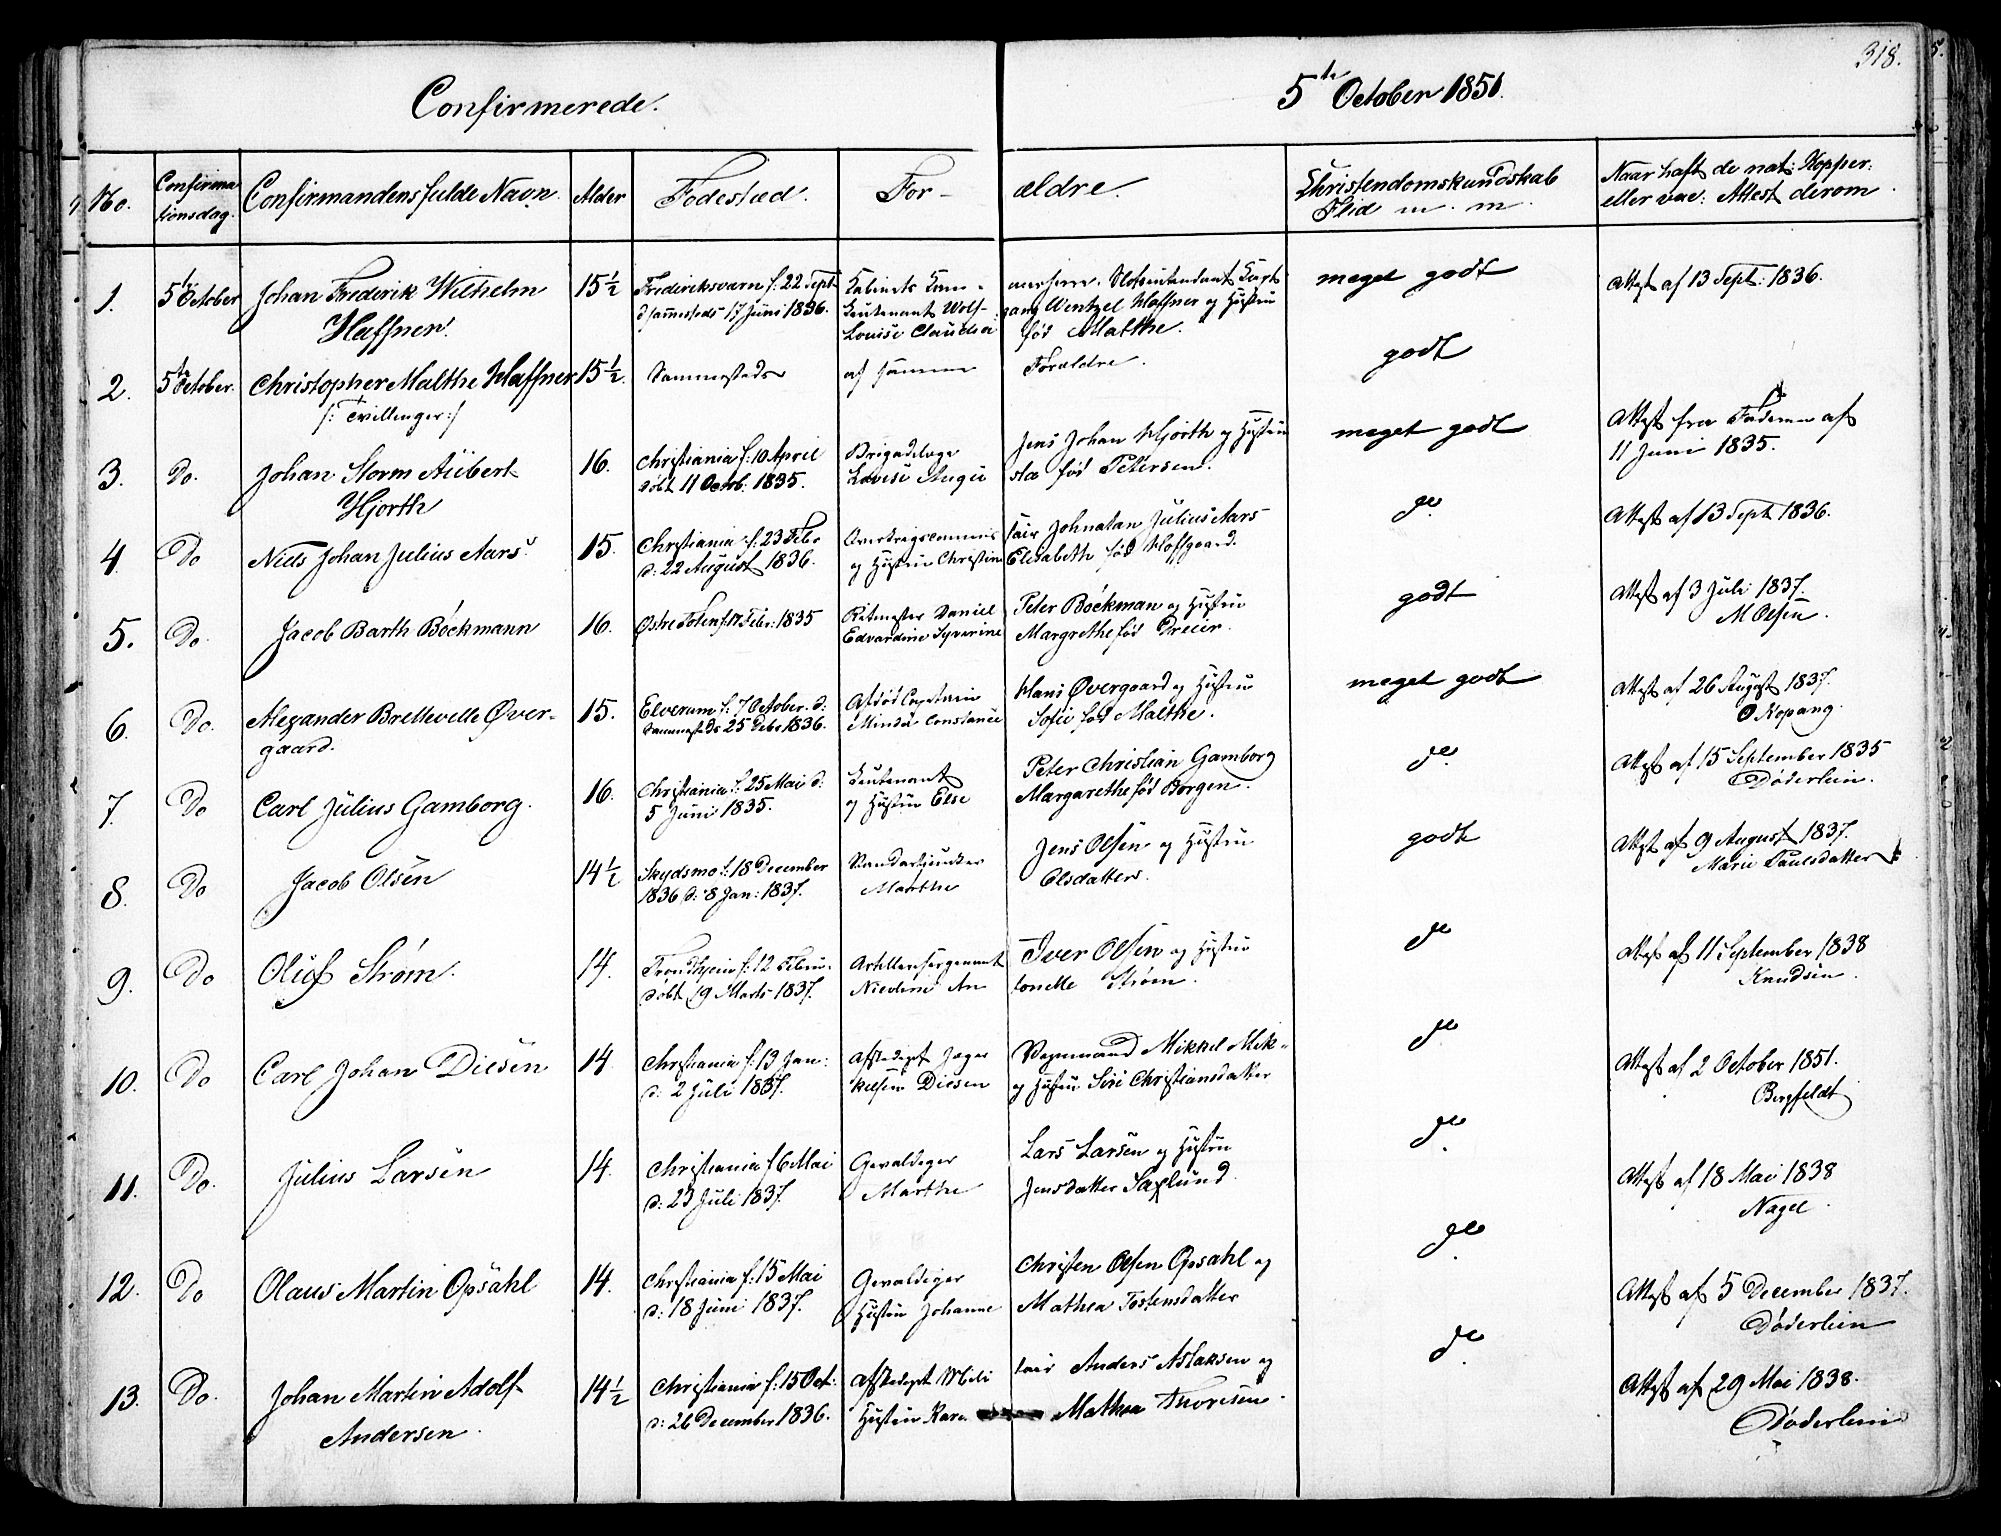 318.
Confirmerede. 5te October 1851.
No. Confirmationsdag. Confirmandens fulde Navn. Alder Fødested. For- ældre. Christendomskundskab Flid m. m. Naar haft de nat: Kopper: eller vac: Attest derom.
1. 5te October Johan Frederik Wilhelm 15½ Frederiksværn f: 22 Sept Kabinets Kam- merherre, Slotsintendant Capt meget godt Attest af 13 Sept: 1836.
Haffner. d sammesteds 17 Juni 1836. Leutenant Wolf- gang Wentzel Haffner og Hustru
Louise Claudia fød Malthe.
2. 5te October. Christopher Malthe Haffner 15½. Sammesteds af samme Forældre. godt
/: Tvillinger :/
3. Do. Johan Storm Aübert 16. Christiania f: 10 April Brigadelæge Jens Johan Hjorth og Hustru meget godt Attest fra Faderen af
Hjorth døbt 11 Octob: 1835. Lovise Augu sta fød Petersen. 11 Juni 1835.
4. Do Niels Johan Julius Aars 15. Christiania f: 23 Febr Overkrigscommis sair Johnatan Julius Aars do. Attest af 13 Sept 1836.
d: 22 August 1836. og Hustru Christine Elisabeth fød Hoffgaard.
5. Do. Jacob Barth Böckmann 16. Østre Toten f. 17 Febr: 1835 Ritmester Daniel Peter Böckman og Hustru godt Attest af 3 Juli 1837.
Edvardine Syverine Margrethe fød Dreier. M Olsen.
6. Do. Alexander Bretteville Øver- 15. Elverum f: 7 October. d: Afdød Captain Hans Øvergaard og Hustru meget godt Attest af 26 August 1837.
gaard. Sammesteds 25 Debr 1836. Minda Constance Sofie fød Malthe. O Kopang.
7. Do Carl Julius Gamborg. 16. Christiania f: 25 Mai d: Leutenant Peter Christian Gamborg do. Attest af 15 September 1835
5 Juni 1835. og Hustru Else Margarethe fød Borgen. Døderlein.
8. Do Jacob Olsen 14½ Skydsmo f: 18 December Vandartjunker Jens Olsen og Hustru godt Attest af 9 August 1837.
1836 d: 8 Jan: 1837. Marthe Olsdatter. Marie Paulsdatter
9. Do Oluf Strøm. 14. Trondhjem f: 12 Febru. Artillerisergeant Iver Olsen og Hustru do Attest af 11 September 1838
døbt 19 Marts 1837. An tonette Strøm. Knudsen.
10. Do Carl Johan Diesen 14 Christiania f: 13 Jan: afskediget Jæger Vognmand Mikkel Mik- do Attest af 2 October 1851.
d: 2 Juli 1837. kelsen Diesen og Hustru Siri Christiansdatter Bergfeldt
11. Do. Julius Larsen 14. Christiania f 6 Mai Gevaldiger Lars Larsen og Hustru do. Attest af 18 Mai 1838
d: 23 Juli 1837. Marthe Jensdatter Saxlund. Nagel.
12. Do Olaus Martin Opsahl 14. Christiania f: 15 Mai Gevaldiger Christen Olsen Opsahl og do. Attest af 5 December 1837.
d: 18 Juni 1837. Hustru Johanne Mathea Tostensdatter Døderlein
13. Do. Johan Martin Adolf 14½ Christiania f: 15 Oct: Afskediget Mili tair Anders Aslaksen og do. Attest af 29 Mai 1838.
Andersen. d: 26 December 1836. Hustru Karen Mathea Thoresen. Døderlein